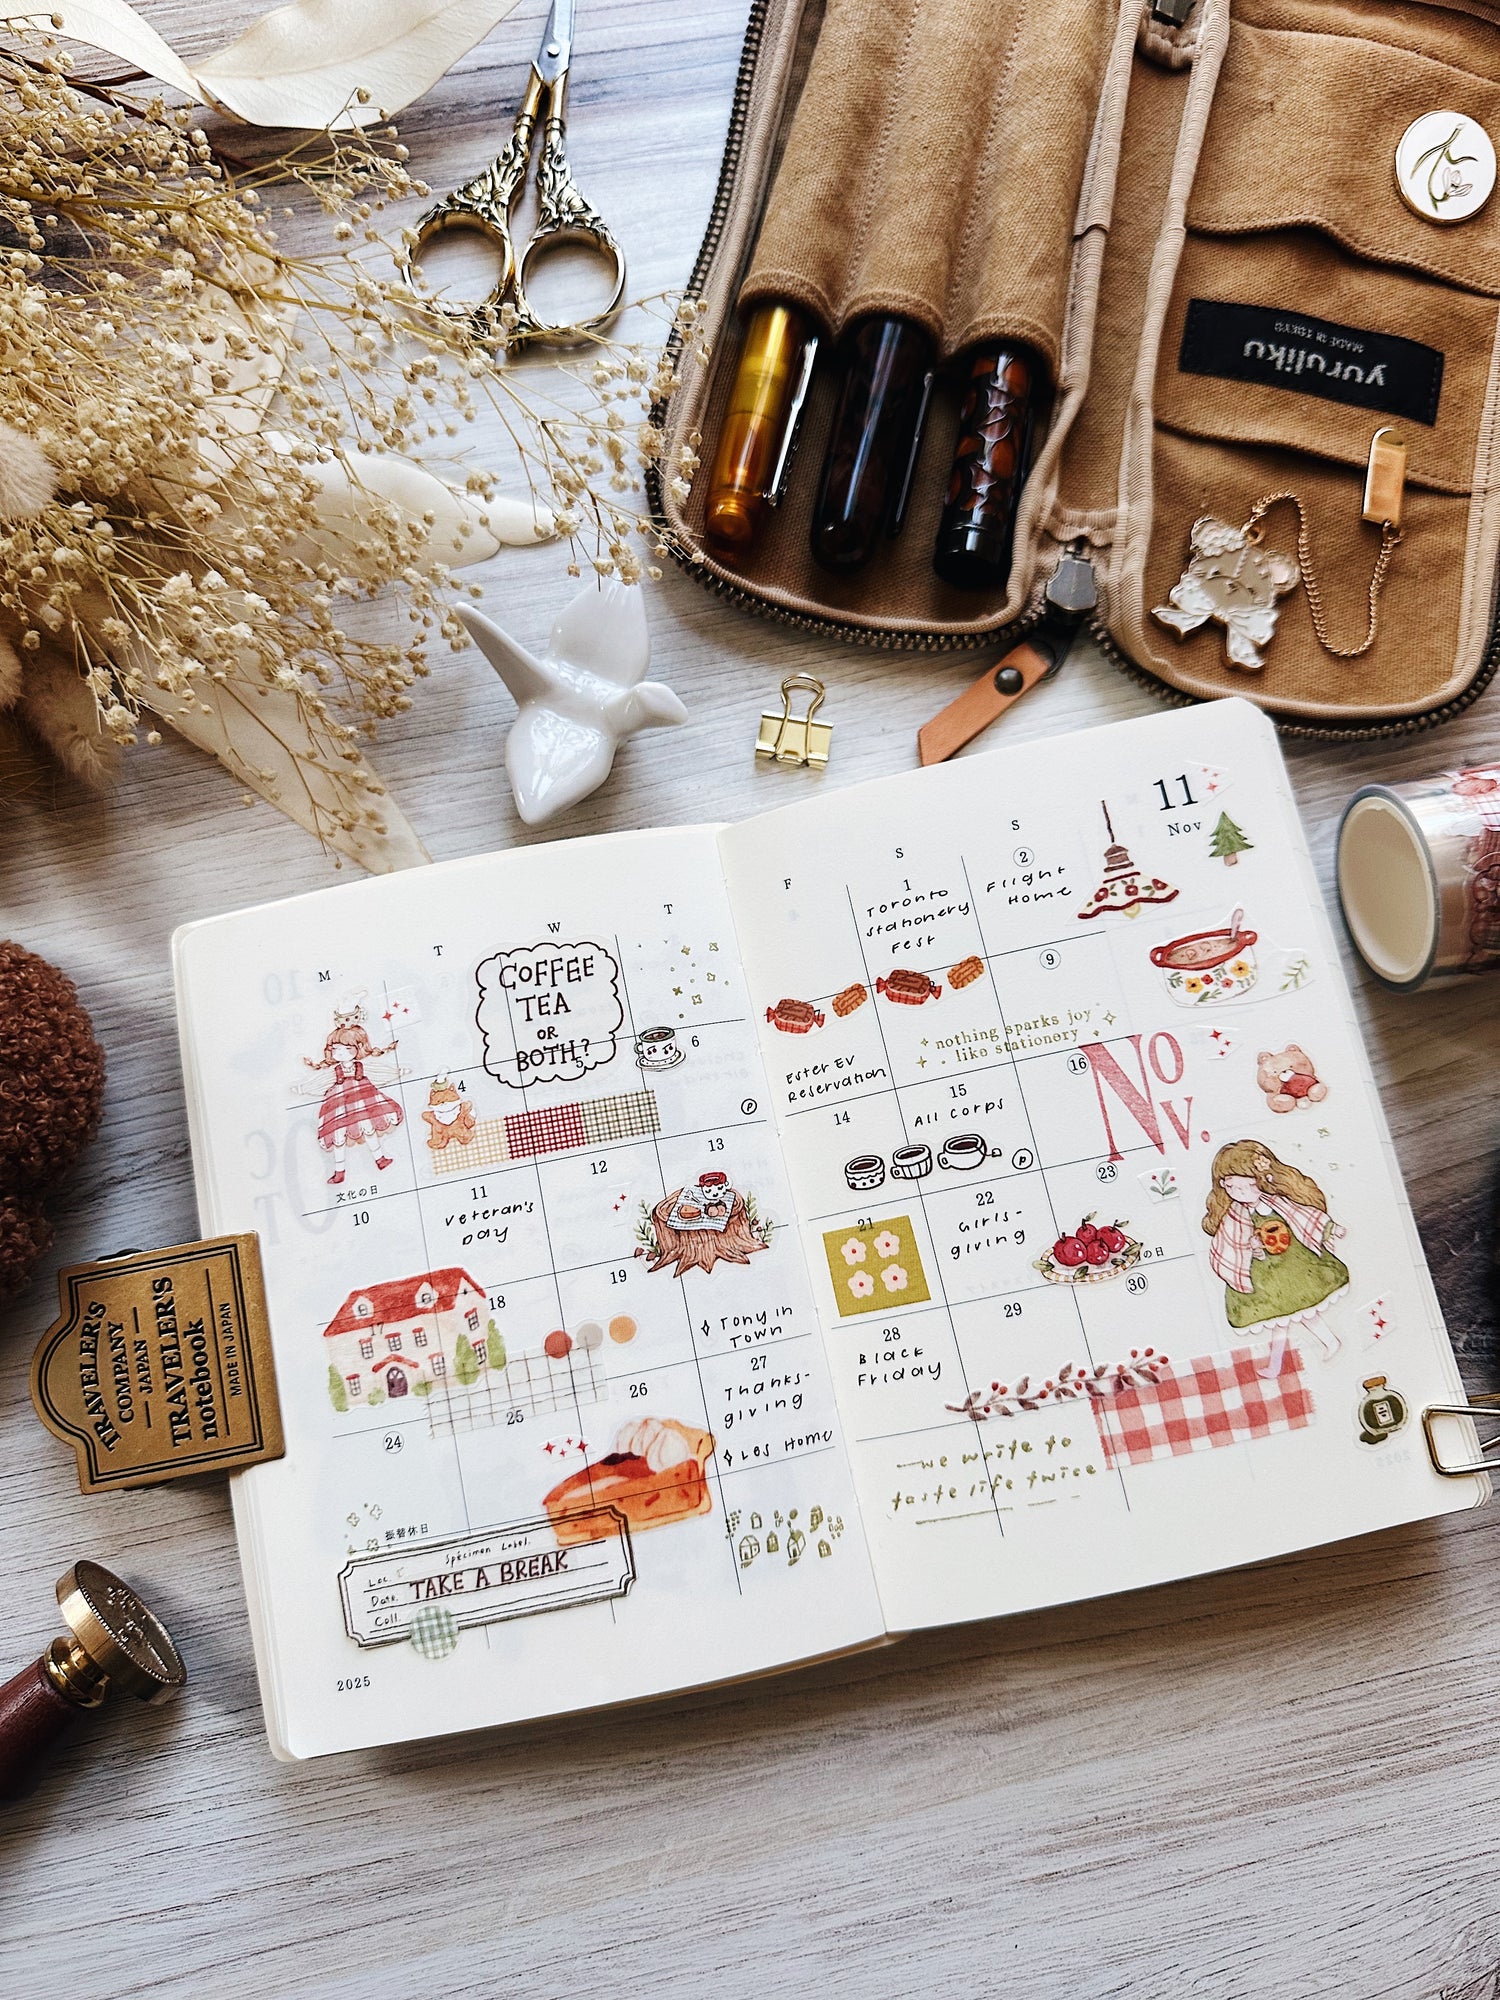 yuruliku
MADE IN TOKYO
11
Nov
M
T
W
T
F
S
S
COFFEE
TEA
OR
BOTH?
1
Toronto
Stationery
Fest
2
Flight
Home
文化の日
4
5
6
Ester EV
Reservation
9
nothing sparks joy
like stationery
No
v.
10
11
Veteran's
Day
12
13
P
14
15
All Corps
P
16
17
18
19
Tony in
Town
21
22
Girls-
giving
23
の日
24
振替休日
25
26
27
Thanks-
giving
Les Home
28
Black
Friday
29
30
Specimen Label.
Loc.
Date.
Coll.
TAKE A BREAK
we write to
taste life twice
2025
TRAVELER'S
COMPANY
JAPAN
TRAVELER'S
notebook
MADE IN JAPAN